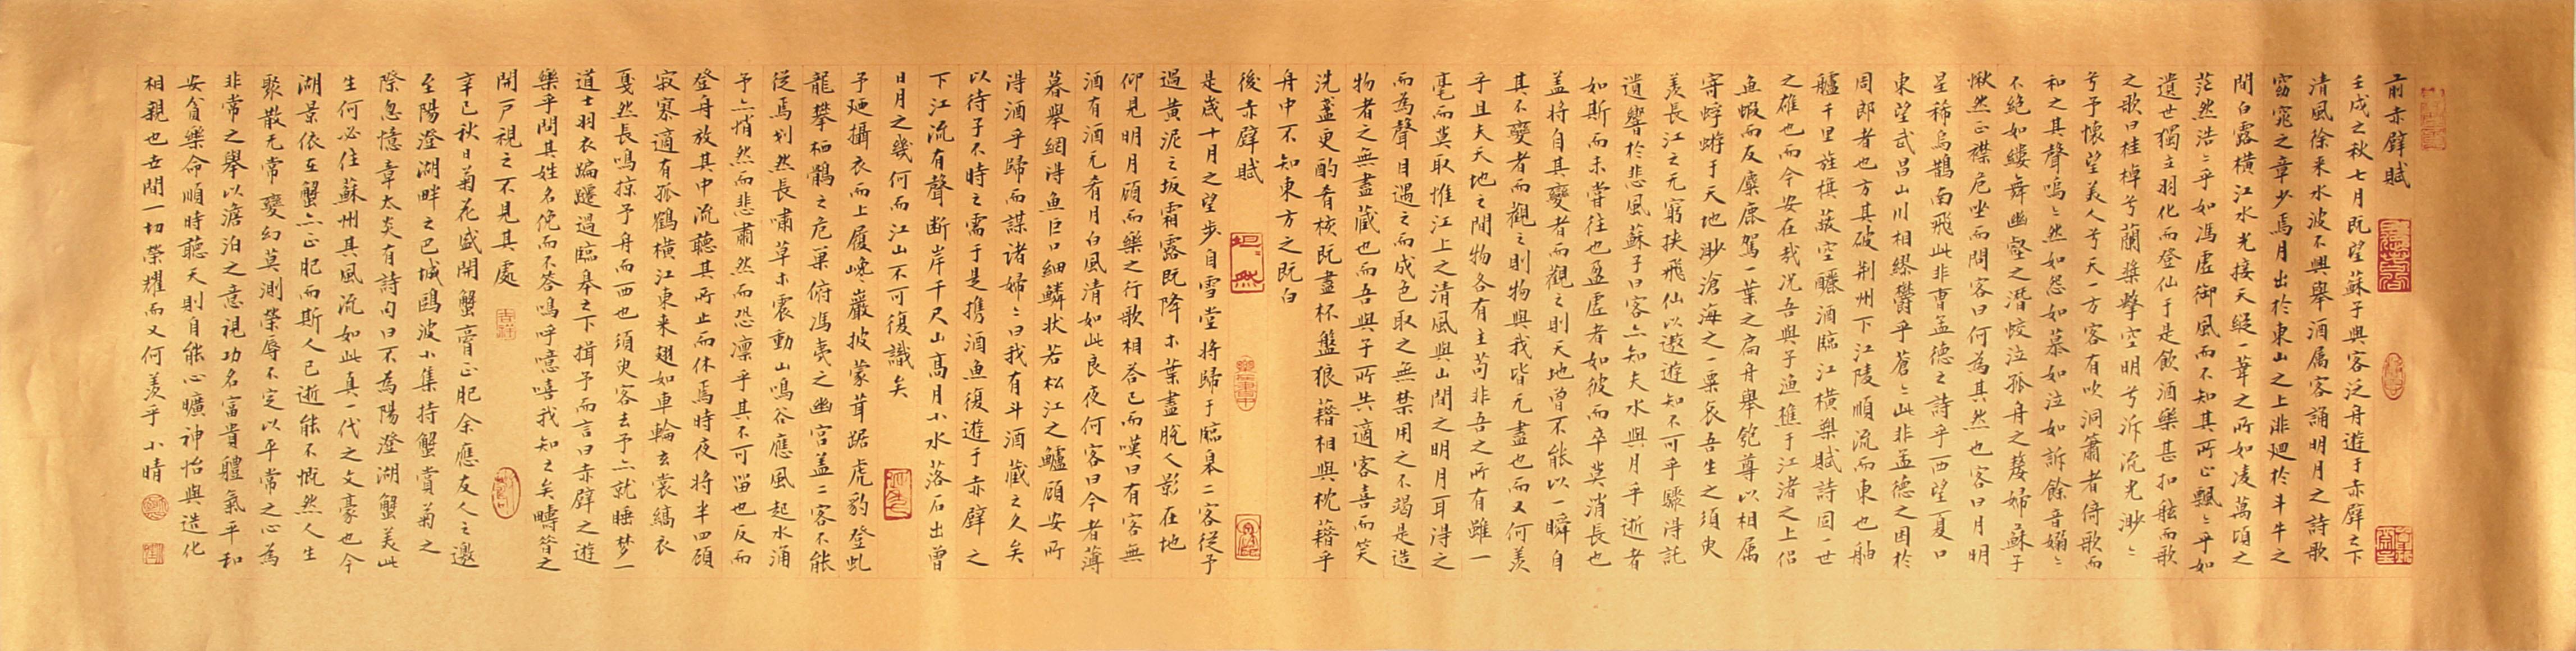 前赤壁賦
壬戌之秋七月既望蘇子與客泛舟遊于赤壁之下
清風徐来水波不興舉酒属客誦明月之詩歌
窈窕之章少焉月出於東山之上非廻於斗牛之
間白露横江水光接天縱一葦之所如凌萬頃之
茫然浩〻乎如馮虛御風而不知其所止飄〻乎如
遺世獨立羽化而登仙于是飲酒樂甚扣舷而歌
之歌曰桂棹兮蘭槳擊空明兮泝流光渺〻
兮予懷望美人兮天一方客有吹洞簫者倚歌而
和之其聲嗚〻然如怨如慕如泣如訴餘音嫋〻
不絕如縷舞幽壑之潛蛟泣孤舟之嫠婦蘇子
愀然正襟危坐而問客曰何為其然也客曰月明
星稀烏鵲南飛此非曹孟德之詩乎西望夏口
東望武昌山川相繆鬱乎蒼〻此非孟德之困於
周郎者也方其破荆州下江陵順流而東也舳
艫千里旌旗蔽空釃酒臨江横槊賦詩固一世
之雄也而今安在哉況吾與子渔樵于江渚之上侣
魚蝦而友麋鹿駕一葉之扁舟舉匏尊以相属
寄蜉蝣于天地渺滄海之一粟哀吾生之須臾
羨長江之无窮挟飛仙以遨遊知不可乎驟得託
遺響於悲風蘇子曰客亦知夫水與月乎逝者
如斯而未嘗往也盈虛者如彼而卒莫消長也
盖将自其變者而觀之則天地曾不能以一瞬自
其不變者而觀之則物與我皆无盡也而又何羨
乎且夫天地之間物各有主苟非吾之所有雖一
毫而莫取惟江上之清風與山間之明月耳得之
而為聲目遇之而成色取之無禁用之不竭是造
物者之無盡藏也而吾與子所共適客喜而笑
洗盞更酌肴核既盡杯盤狼藉相與枕藉乎
舟中不知東方之既白
後赤壁賦
是歳十月之望步自雪堂将歸于臨皋二客從予
過黄泥之坂霜露既降木葉盡脫人影在地
仰見明月顧而樂之行歌相答已而嘆曰有客無
酒有酒无肴月白風清如此良夜何客曰今者薄
暮舉網得魚巨口細鱗状若松江之鱸顧安所
得酒乎歸而謀诸婦〻曰我有斗酒藏之久矣
以待子不時之需于是携酒魚復遊于赤壁之
下江流有聲断岸千尺山高月小水落石出曾
日月之幾何而江山不可復識矣
予廼攝衣而上履巉巖披蒙茸踞虎豹登虬
龍攀栖鶻之危巢俯馮夷之幽宫盖二客不能
從焉划然長嘯草木震動山鳴谷應風起水涌
予亦悄然而悲肅然而恐凛乎其不可留也反而
登舟放其中流聽其所止而休焉時夜将半四顧
寂寥適有孤鶴横江東来翅如車輪玄裳縞衣
戛然長鳴掠予舟而西也須臾客去予亦就睡梦一
道士羽衣蹁躚過臨皋之下揖予而言曰赤壁之遊
樂乎問其姓名俛而不答嗚呼噫嘻我知之矣疇昔之
開戸視之不見其處
吉祥
辛巳秋日菊花盛開蟹膏正肥余應友人之邀
至陽澄湖畔之巴城鷗波小集持蟹賞菊之
際忽憶章太炎有詩句曰不為陽澄湖蟹美此
生何必住蘇州其風流如此真一代之文豪也今
湖景依在蟹亦正肥而斯人已逝能不慨然人生
聚散无常變幻莫測榮辱不定以平常之心為
非常之舉以澹泊之意視功名富貴體氣平和
安貧樂命順時聽天則自能心曠神怡與造化
相親也世間一切榮耀而又何羨乎小晴